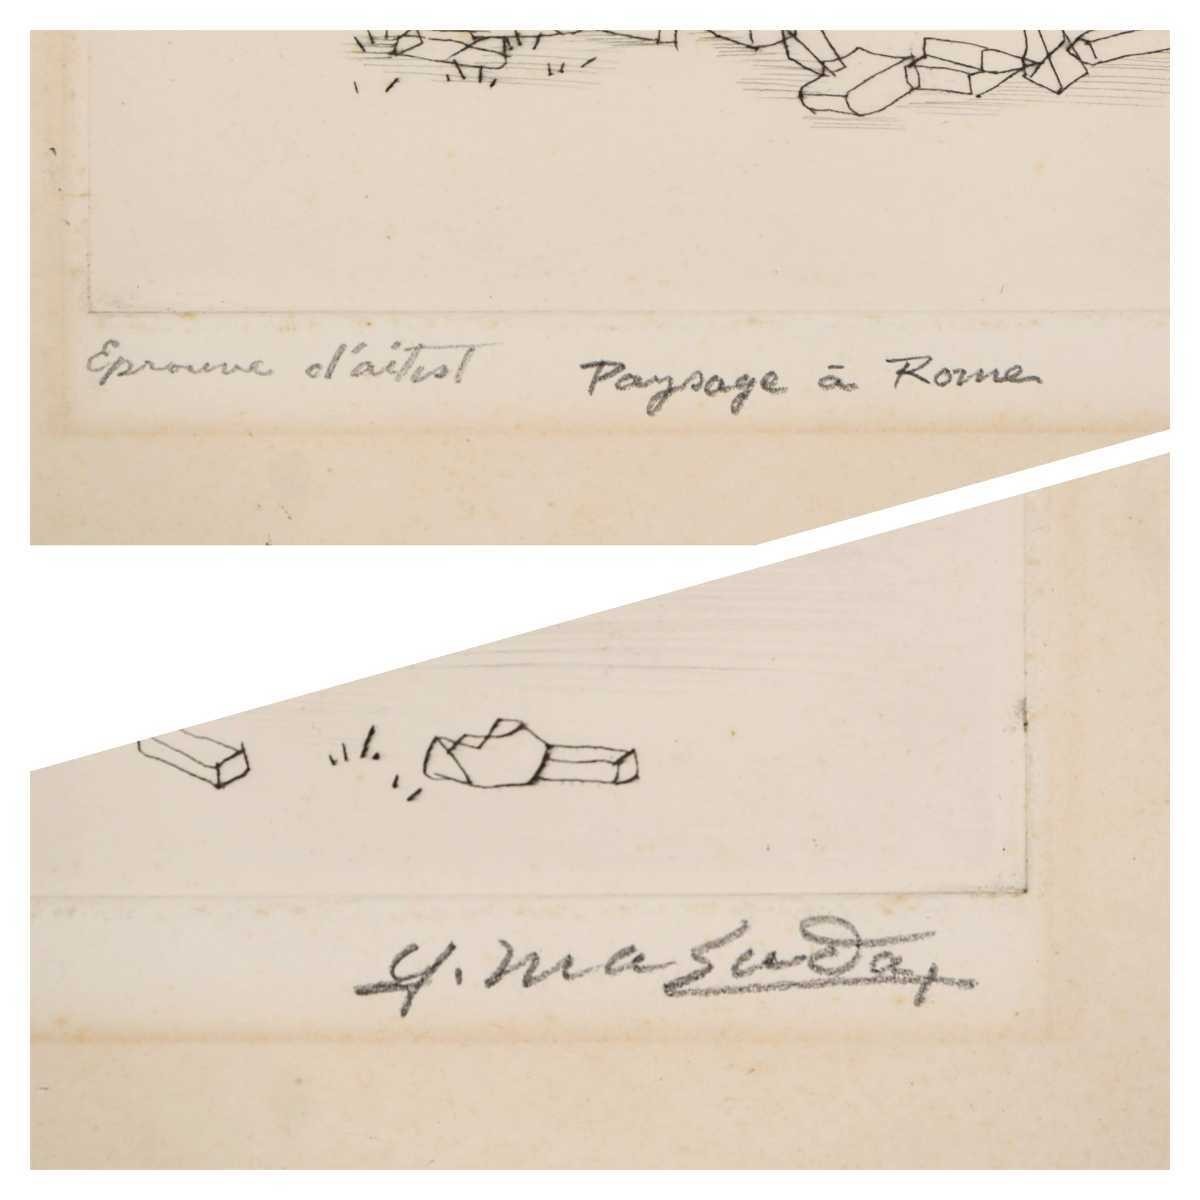 Eprouve d'aitist Paysage à Rome
Y. Masuda